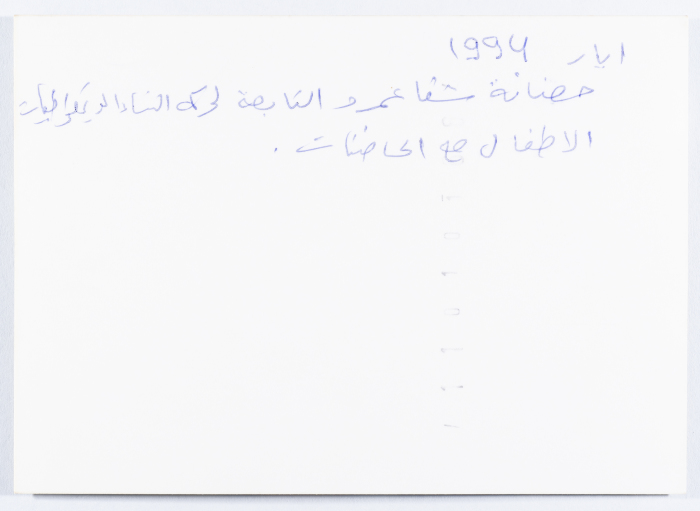 ايار 1994
حضانة شفاعمرو التابعة لحركه النساء الديمقراطيات
الاطفال مع الحاضنات .